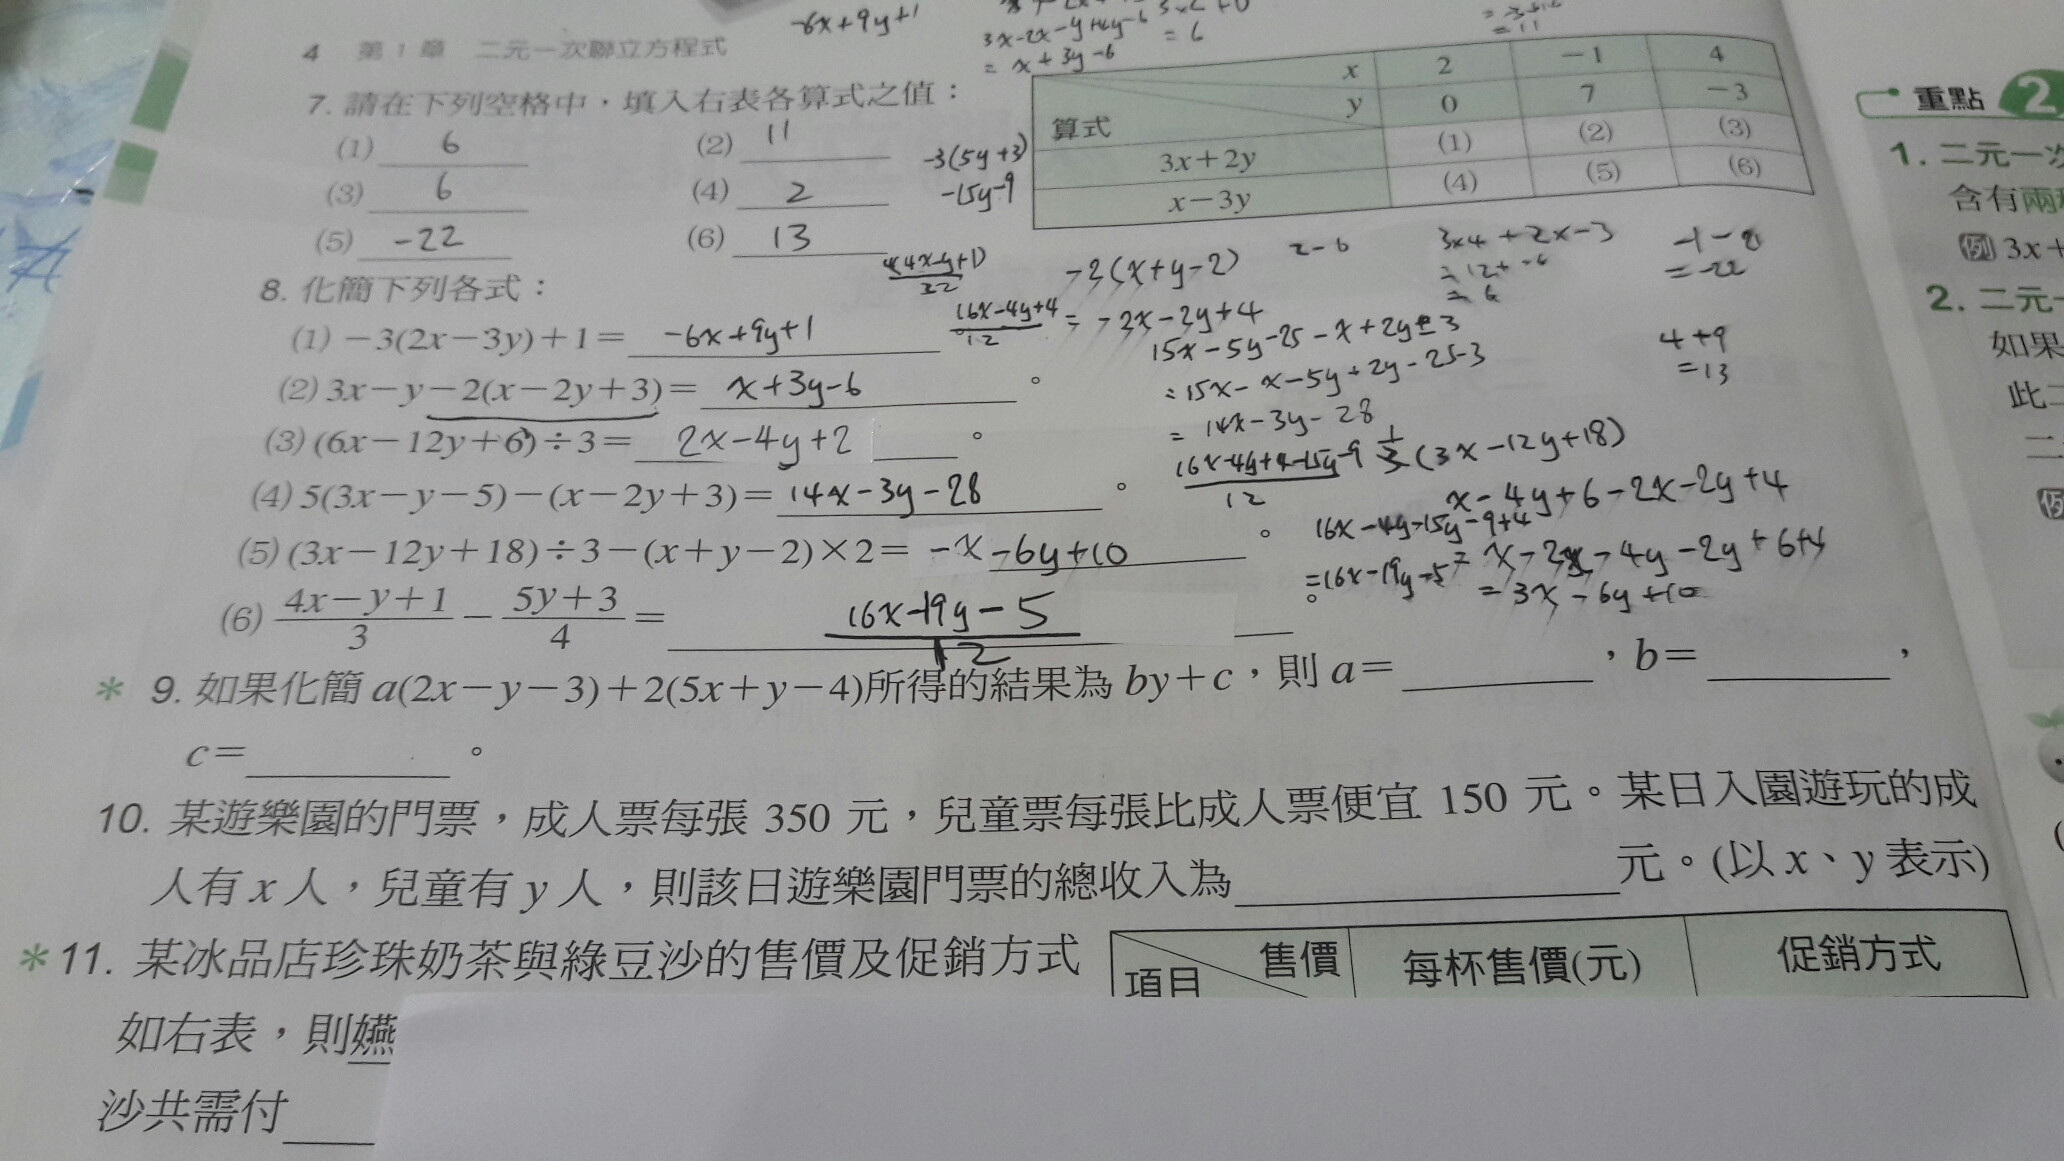 -6x+9y+1
3x-2x-y+4y-6
= x+3y-6
= 6
= 11
4 第1章 二元一次聯立方程式
7. 請在下列空格中，填入右表各算式之值：
(1) 6 (2) 11
(3) 6 (4) 2
(5) -22 (6) 13
-3(5y+3)
-15y-9
x 2 -1 4
y 0 7 -3
算式
3x+2y (1) (2) (3)
x-3y (4) (5) (6)
重點 2
1. 二元一次
含有兩
例 3x+
2. 二元一
如果
此二
二
8. 化簡下列各式：
(1) -3(2x-3y)+1= -6x+9y+1
(2) 3x-y-2(x-2y+3)= x+3y-6 。
(3) (6x-12y+6)÷3= 2x-4y+2 。
(4) 5(3x-y-5)-(x-2y+3)= 14x-3y-28 。
(5) (3x-12y+18)÷3-(x+y-2)×2= -x-6y+10 。
(6) (4x-y+1)/3 - (5y+3)/4 = (16x-19y-5)/12 。
16x-4y+4
12
-2(x+y-2)
= -2x-2y+4
2-6
3x4+2x-3
= 12+-6
= 6
= -22
4+9
=13
15x-5y-25-x+2y-3
= 15x-x-5y+2y-25-3
= 14x-3y-28
16x-4y+4-15y-9
12
1/3(3x-12y+18)
x-4y+6-2x-2y+4
16x-4y-15y-9+4
=16x-19y-5
= 3x-6y+10
* 9. 如果化簡 a(2x-y-3)+2(5x+y-4)所得的結果為 by+c，則 a= ，b= ，
c= 。
10. 某遊樂園的門票，成人票每張 350 元，兒童票每張比成人票便宜 150 元。某日入園遊玩的成
人有 x 人，兒童有 y 人，則該日遊樂園門票的總收入為 元。(以 x、y 表示)
* 11. 某冰品店珍珠奶茶與綠豆沙的售價及促銷方式
如右表，則嬿
沙共需付
售價 每杯售價(元) 促銷方式
項目